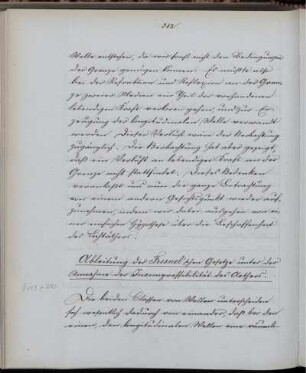 313.
Welle entstehen, die wir hier nicht den Bedingungen
der Grenze genügen können. Es müßte also
bei der Refraction und Reflexion an der Grenze
zweier Medien ein Theil der vorhandenen
lebendigen Kraft verloren gehen, und zur Erzeugung
der longitudinalen Welle verwandt
werden. Dieser Verlust wäre der Beobachtung
zugänglich. Die Beobachtung hat aber gezeigt,
daß ein Verlust an lebendiger Kraft an der
Grenze nicht stattfindet. Dieses Bedenken
veranlaßt uns nun die ganze Betrachtung
von einem anderen Gesichtspunkt wieder aufzunehmen,
indem wir dabei ausgehen von einer
einfachen Hypothese über die Beschaffenheit
des Lichtäthers.
Ableitung der Fresnel'schen Gesetze unter der
Annahme der Incompressibilität des Aethers.
Die beiden Classen von Wellen unterscheiden
sich wesentlich dadurch von einander, daß bei der
einen, den longitudinalen Wellen eine räuml-